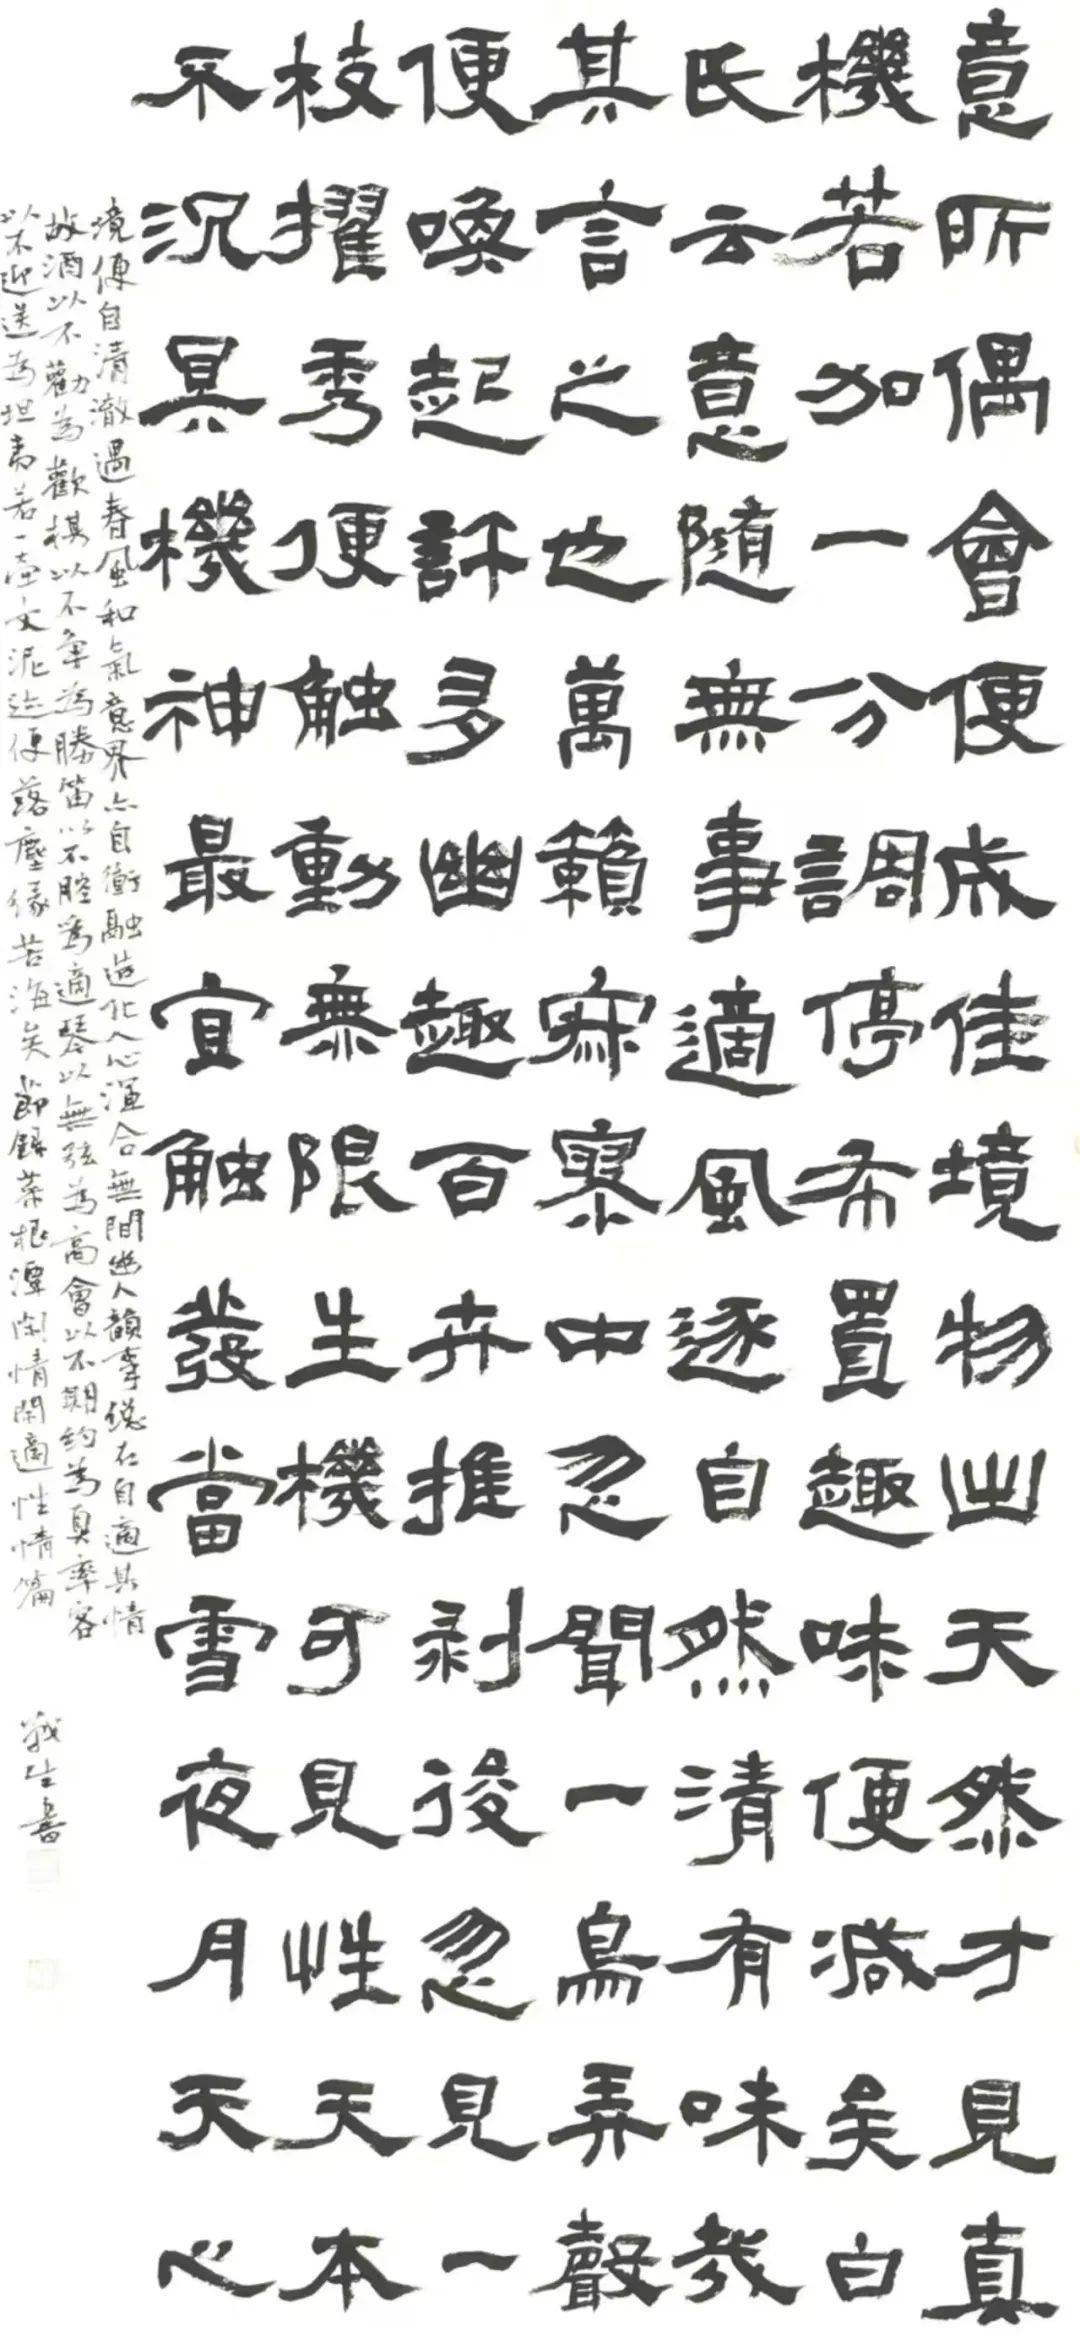 意所偶會便成佳境物出天然才見真
機若加一分調停布置趣味便減矣白
氏云意隨無事適風逐自然清有味哉
其言之也萬籟寂寥中忽聞一鳥弄聲
便喚起許多幽趣百卉摧剥後忽見一
枝擢秀便触動無限生機可見性天本
不沉冥機神最宜触發當雪夜月天心
境便自清澈遇春風和氣意界亦自衝融造化人心渾合無間幽人韻事總在自適其情
故酒以不勸為歡棋以不爭為勝笛以不腔為適琴以無弦為高會以不期約為真率客
以不迎送為坦夷若一牽文泥迹便落塵緣苦海矣 節錄菜根潭閑情閑適性情篇
生書